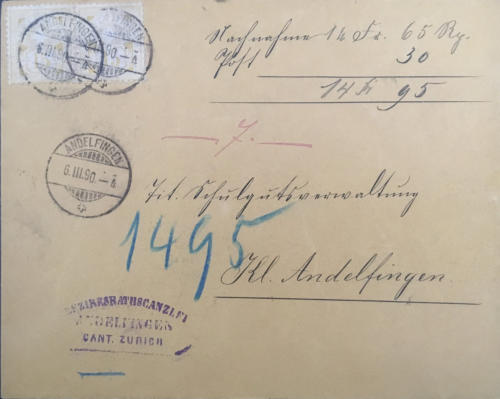 ANDELFINGEN
6.III.90.
Nachnahme 14 Fr. 65 Rp.
Post 30
14 Fr 95
7.
ANDELFINGEN
6.III.90.
Tit. Schulgutsverwaltung
1495
Kl. Andelfingen.
BEZIRKSRATHSCANZLEI
ANDELFINGEN
CANT. ZÜRICH